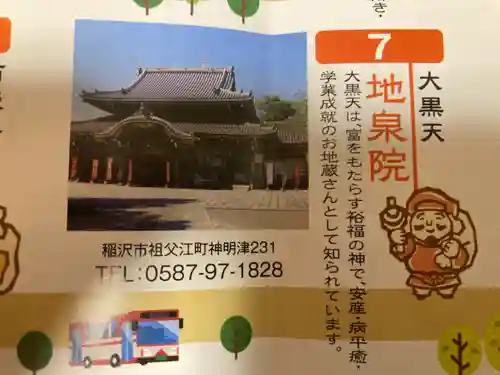 7
地泉院
大黒天
大黒天は、富をもたらす裕福の神で、安産・病平癒・
学業成就のお地蔵さんとして知られています。
稲沢市祖父江町神明津231
TEL:0587-97-1828